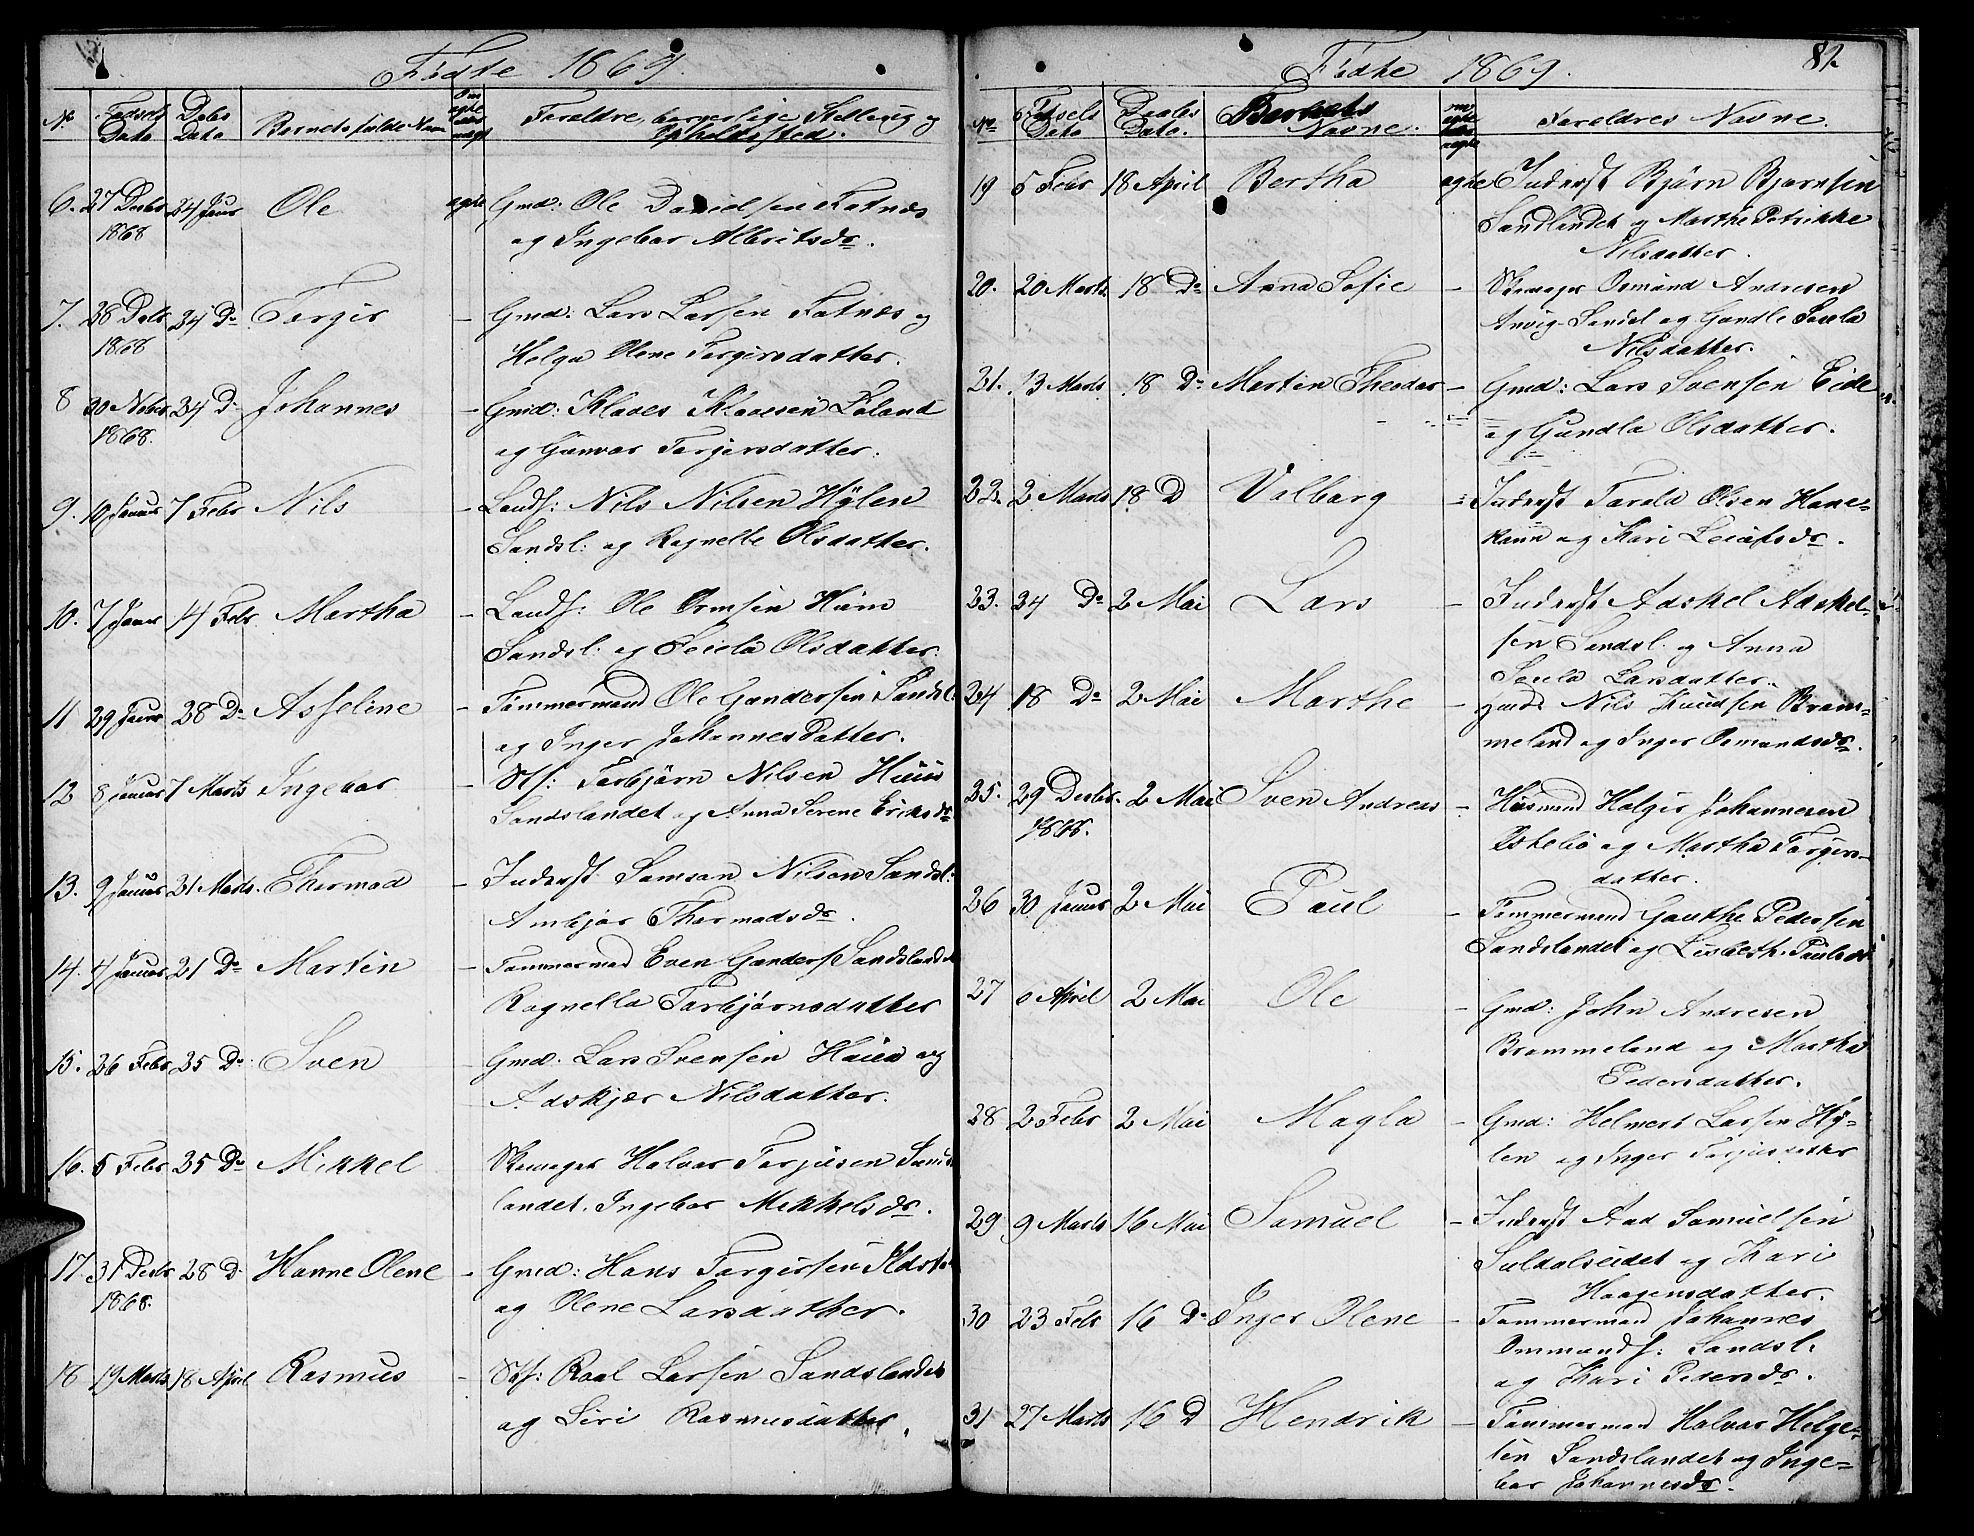 Fødte 1869.
No Fødsels Dato Dobs Dato Barnets fulde Navn Om ægte eller uægt Forældre, borgerlige Stilling og Opholdssted.
6. 27 Decbr 24 Janr Ole ægte Gmd: Ole Davidsen Fatnæs
1868 og Ingebor Albritsdr.
7. 28 Decbr 24 Do Torgir – Gmd: Lars Larsen Fatnæs og
1868 Helga Olene Torgirsdatter.
8 20 Nobr 24 D Johannes – Gmd: Klaves Klavesen Løland
1868. og Gunvor Torgersdatter.
9. 10 Januar 7 Febr Nils – Landh: Nils Nilsen Hylen
Sandsl: og Ragnelle Olsdatter.
10. 7 Janr 14 Febr Martha – Landh: Ole Ormsen
Sandsl. og Seiela Olsdatter.
11 29 Janr 28 Do Asseline – Tømmermand Ole Gundersen Sandsl:
og Inger Johannesdatter.
12 8 Januar 7 Marts Ingebor – Torbjørn Nilsen
Sandslandet og Anna Serene Eriksdr
13. 9 Januar 21 Marts. Thormod – Inderst Samson Nilsen Sandsl:
Ambjør Thormodsdr.
14. 4 Januar 21 Do Martin – Tømmermand Even Gunders Sandslandet
Ragnella Torbjørnsdatter
15. 26 Febr 25 Do Sven – Gmd: Lars Svensen og
Adskjær Nilsdatter.
16. 5 Febr 25 Do Mikkel Skomager Halvor Torjusen Sands
landet. Ingebor Mikkelsdr.
17. 31 Decbr 28 D Hanne Olene – Gmd: Hans Torgersen
1868. og Olene Larsdatter.
18 19 Marts 18 April Rasmus – Roal Larsen Sandslandet
og Siri Rasmusdatter.
Fødte 1869. 82
No Fødsels Dato Daabs Dato. Barnets Navne. om ægte eller uægte Forældres Navne.
19 5 Febr 18 April Bertha ægte Inderst Bjørn Bjørnsen
Sandlandet og Marthe Petrikke
Nilsdatter.
20. 20 Marts 18 Do Anna Sofie – Skomager Osmund Andresen
og Gundle Sæela
Nilsdatter.
21. 13 Marts 18 Do Martin Theodor – Gmd: Lars Svensen Eide
og Gundla Olsdatter.
22. 2 Marts 18 D Valborg Inderst Tarald Olsen Hane-
kann og Kari Leiufsdr.
23. 24 Do 2 Mai Lars – Inderst Adskel Adskel-
sen Sandsl. og Anna
Sæela Larsdatter.
24 18 Do 2 Mai Marthe – Gmd Nils Knudsen Bram-
meland og Inger Osmundsdr.
25. 29 Decbr. 2 Mai Sven Andreas – Husmand Holgir Johannesen
1868. og Martha Torgers-
datter.
26 30 Januar 2 Mai Paul – Tømmermand Gauthe Pedersen
Sandslandet og Lisbeth Paulsdr
27 6 April 2 Mai Ole – Gmd: John Andresen
Brommeland og Martha
Pedersdatter.
28 2 Febr 2 Mai Magla – Gmd: Helmert Larsen Hy-
len og Inger Torjusdatter
29 9 Marts 16 Mai Samuel – Inderst Aad Samuelsen
Suldalseidet og Kari
Haagensdatter.
30 23 Febr 16 Do Inger Olene – Tømmermand Johannes
Ommunds: Sandsl.
og Kari Pedersdr.
31 27 Marts 16 D Hendrik – Tømmermand Halvor Helge-
sen Sandslandet og Inge-
bor Johannesdr.